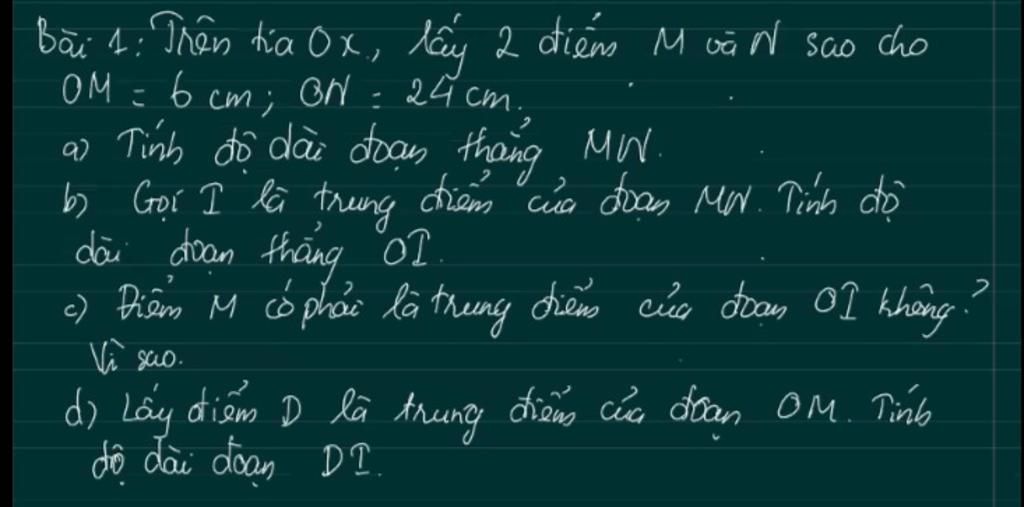 Bài 1: Trên tia Ox, lấy 2 điểm M và N sao cho
OM = 6 cm; ON = 24 cm.
a) Tính độ dài đoạn thẳng MN.
b) Gọi I là trung điểm của đoạn MN. Tính độ
dài đoạn thẳng OI.
c) Điểm M có phải là trung điểm của đoạn OI không?
Vì sao.
d) Lấy điểm D là trung điểm của đoạn OM. Tính
độ dài đoạn DI.